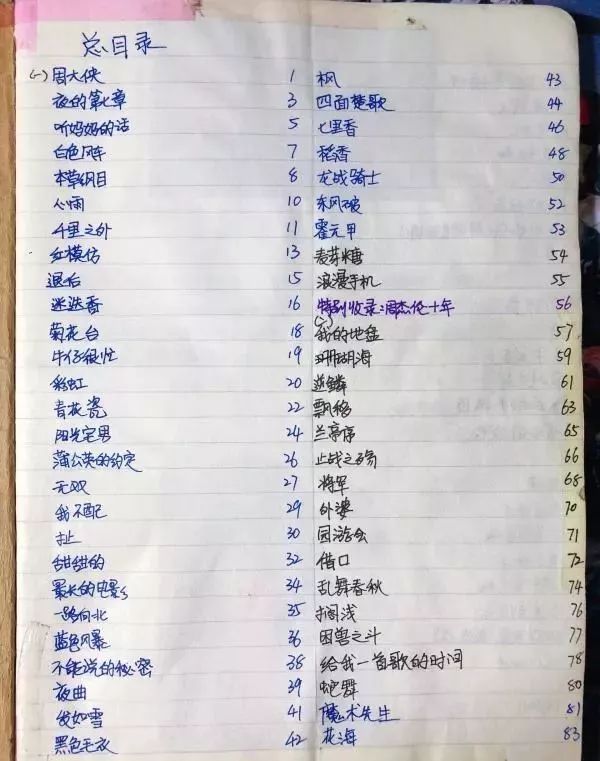 总目录
(一) 周大侠 1
夜的第七章 3
听妈妈的话 5
白色风车 7
本草纲目 8
心雨 10
千里之外 11
红模仿 13
退后 15
迷迭香 16
菊花台 18
牛仔很忙 19
彩虹 20
青花瓷 22
阳光宅男 24
蒲公英的约定 26
无双 27
我不配 29
扯 30
甜甜的 32
最长的电影 34
一路向北 35
蓝色风暴 36
不能说的秘密 38
夜曲 39
发如雪 41
黑色毛衣 42
枫 43
四面楚歌 44
七里香 46
稻香 48
龙战骑士 50
东风破 52
霍元甲 53
麦芽糖 54
浪漫手机 55
特别收录:周杰伦十年 56
(二) 我的地盘 57
珊瑚海 59
逆鳞 61
飘移 63
兰亭序 65
止战之殇 66
将军 68
外婆 70
园游会 71
借口 72
乱舞春秋 74
搁浅 76
困兽之斗 77
给我一首歌的时间 78
蛇舞 80
魔术先生 81
花海 83